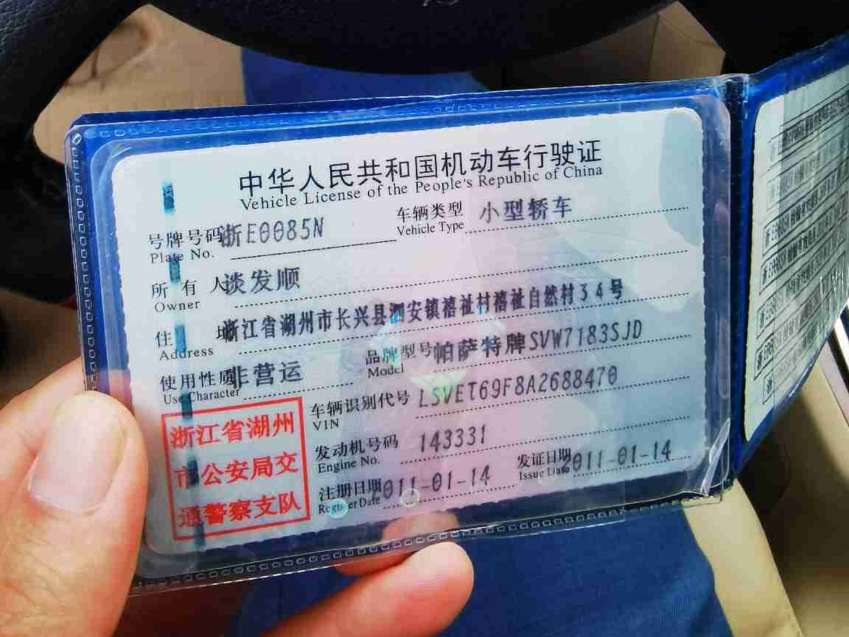 中华人民共和国机动车行驶证
Vehicle License of the People's Republic of China
号牌号码 浙E0085N 车辆类型 小型轿车
Plate No. Vehicle Type
所有人 谈发顺
Owner
住址 浙江省湖州市长兴县泗安镇禧祉村禧祉自然村34号
Address
使用性质 非营运 品牌型号 帕萨特牌SVW7183SJD
Use Character Model
车辆识别代号 LSVET69F8A2688470
VIN
发动机号码 143331
Engine No.
注册日期 011-01-14 发证日期 011-01-14
Register Date Issue Date
浙江省湖州
市公安局交
通警察支队